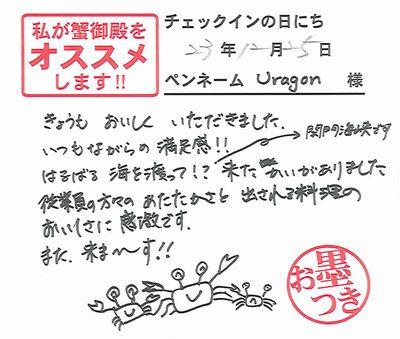 私が蟹御殿を
オススメ
します!!
チェックインの日にち
23年12月25日
ペンネーム Uragon 様
きょうも おいしく いただきました.
いつもながらの 満足感!!
→関門海峡です
はるばる 海を渡って!? 来た かいがありました
従業員の方々の あたたかさと 出される料理の
おいしさに 感激です.
また、来ま〜す!!
お墨つき